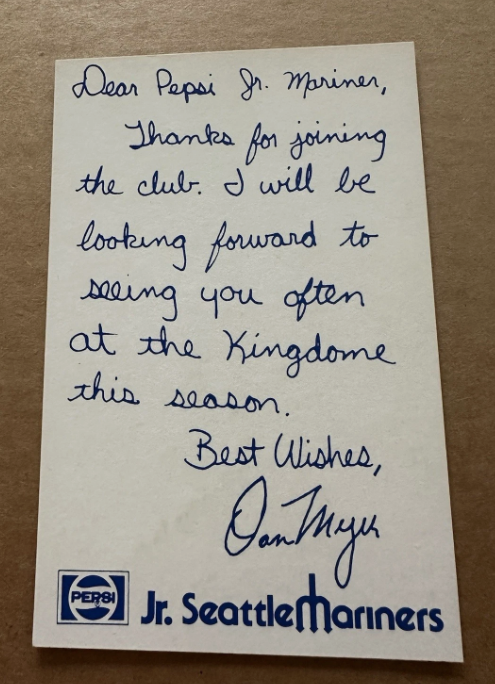 Dear Pepsi Jr. Mariner,
Thanks for joining
the club. I will be
looking forward to
seeing you often
at the Kingdome
this season.
Best Wishes,
Dan Meyer
PEPSI
Jr. Seattle Mariners